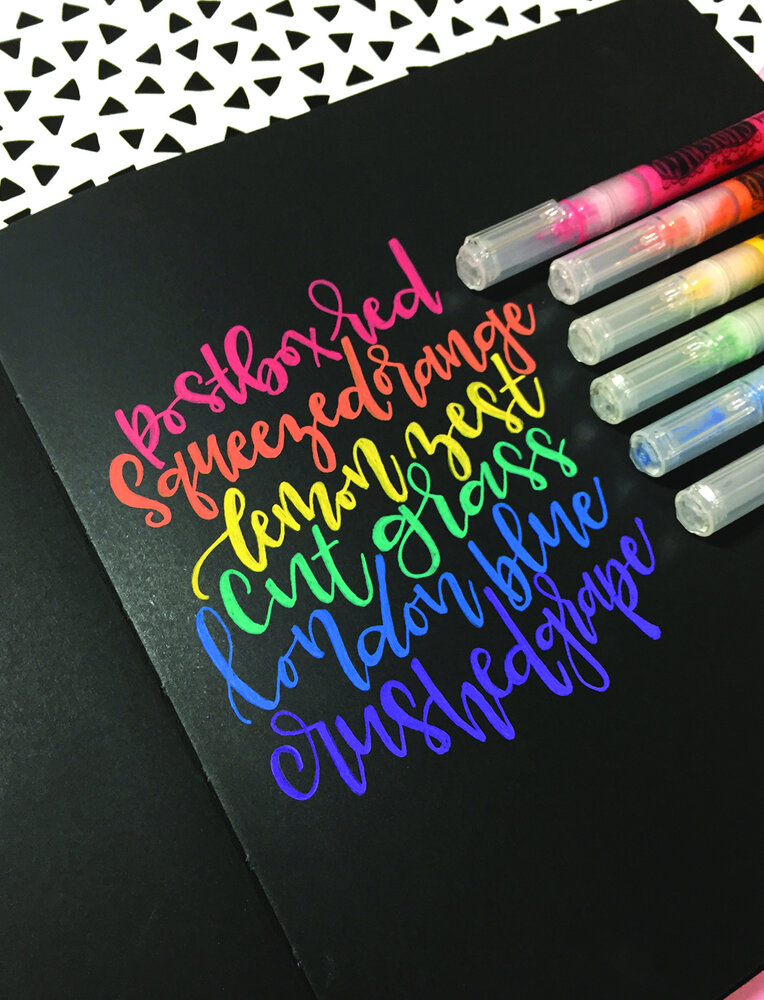 postbox red
Squeezed orange
lemon zest
cut grass
london blue
crushed grape